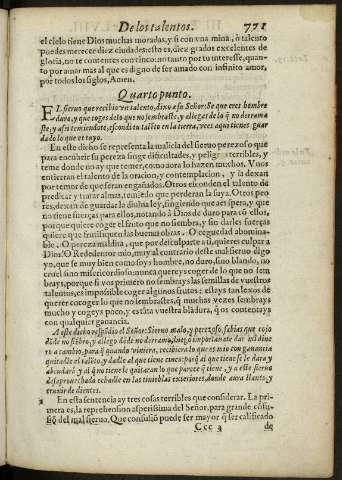 De los talentos. 771
el cielo tiene Dios muchas moradas, y si con vna mina, ò talento
puedes merecer diez ciudades: esto es, diez grados excelentes de
gloria, no te contentes con cinco: no tanto por tu interesse, quan-
to por amar mas al que es digno de ser amado con infinito amor,
por todos los siglos, Amen.
Quarto punto.
EL sieruo que recibio vn talento, dixo a su Señor: Se que eres hombre
dura, y que coges de lo que no sembraste, y allegas de lo que no derrama
ste, y assi temiendote, escondi tu talẽto en la tierra, vees aqui tienes guar
dado lo que es tuyo.
En este dicho se representa la malicia del sieruo perezoso que
para encubrir su pereza finge dificultades, y peligros terribles, y
teme donde no ay que temer, como aora lo hazen muchos. Vnos
entierran el talento de la oracion, y contemplacion, y la dexan
por temor de que seran engañados. Otros esconden el talento de
predicar y tratar almas, temiẽdo que perderan la suya. Otros peo-
res, dexan de guardar la diuina ley, fingiendo que es aspera, y que
no tiene fuerças para ellos, notando à Dios de duro para cõ ellos,
porque quiere coger el fruto que no siembra, y sin darles fuerças
quiere que fructifiquen las buenas obras. O ceguedad abomina-
ble, O pereza maldita, que por desculparte a ti, quieres culpar a
Dios! O Redentor mio, muy al contrario deste mal sieruo digo
yo, que se muy bien como soys hombre, no duro, sino blando, no
cruel sino misericordioso: nunca quereys coger de lo que no sem
brays, porque si vos primero no sembrays las semillas de vuestros
talentos, es impossible coger algunos frutos: estays tan lexos de
querer coger lo que no sembrastes, q̃ muchas vezes sembrays
mucho y cogeys poco, y es tãta vuestra blãdura, q̃ os contentays
con qualquier ganancia.
A este dicho respõdio el Señor: Sieruo malo, y perezoso, sabias que cojo
dõde no siẽbro, y allego dõde no derramo, luego importante dar mi dine
ro a cambio, para q̃ quando viniera, recibiera lo que es mio con ganancia
quitalde el talẽto, y dalde al que tiene cinco: porq̃ al que tiene se le dara y
abũdarà, y al q̃ no tiene le quitaran lo que parece q̃ tiene, y a este sieruo
desaprouechado echalde en las tinieblas exteriores, donde aura llanto, y
cruxir de dientes.
En esta sentencia ay tres cosas terribles que considerar. La pri-
mera es, la reprehension asperissima del Señor, para grande cõfu-
siõ del mal sieruo. Que confusiõ puede ser mayor q̃ ser calificado
Ccc 2 de